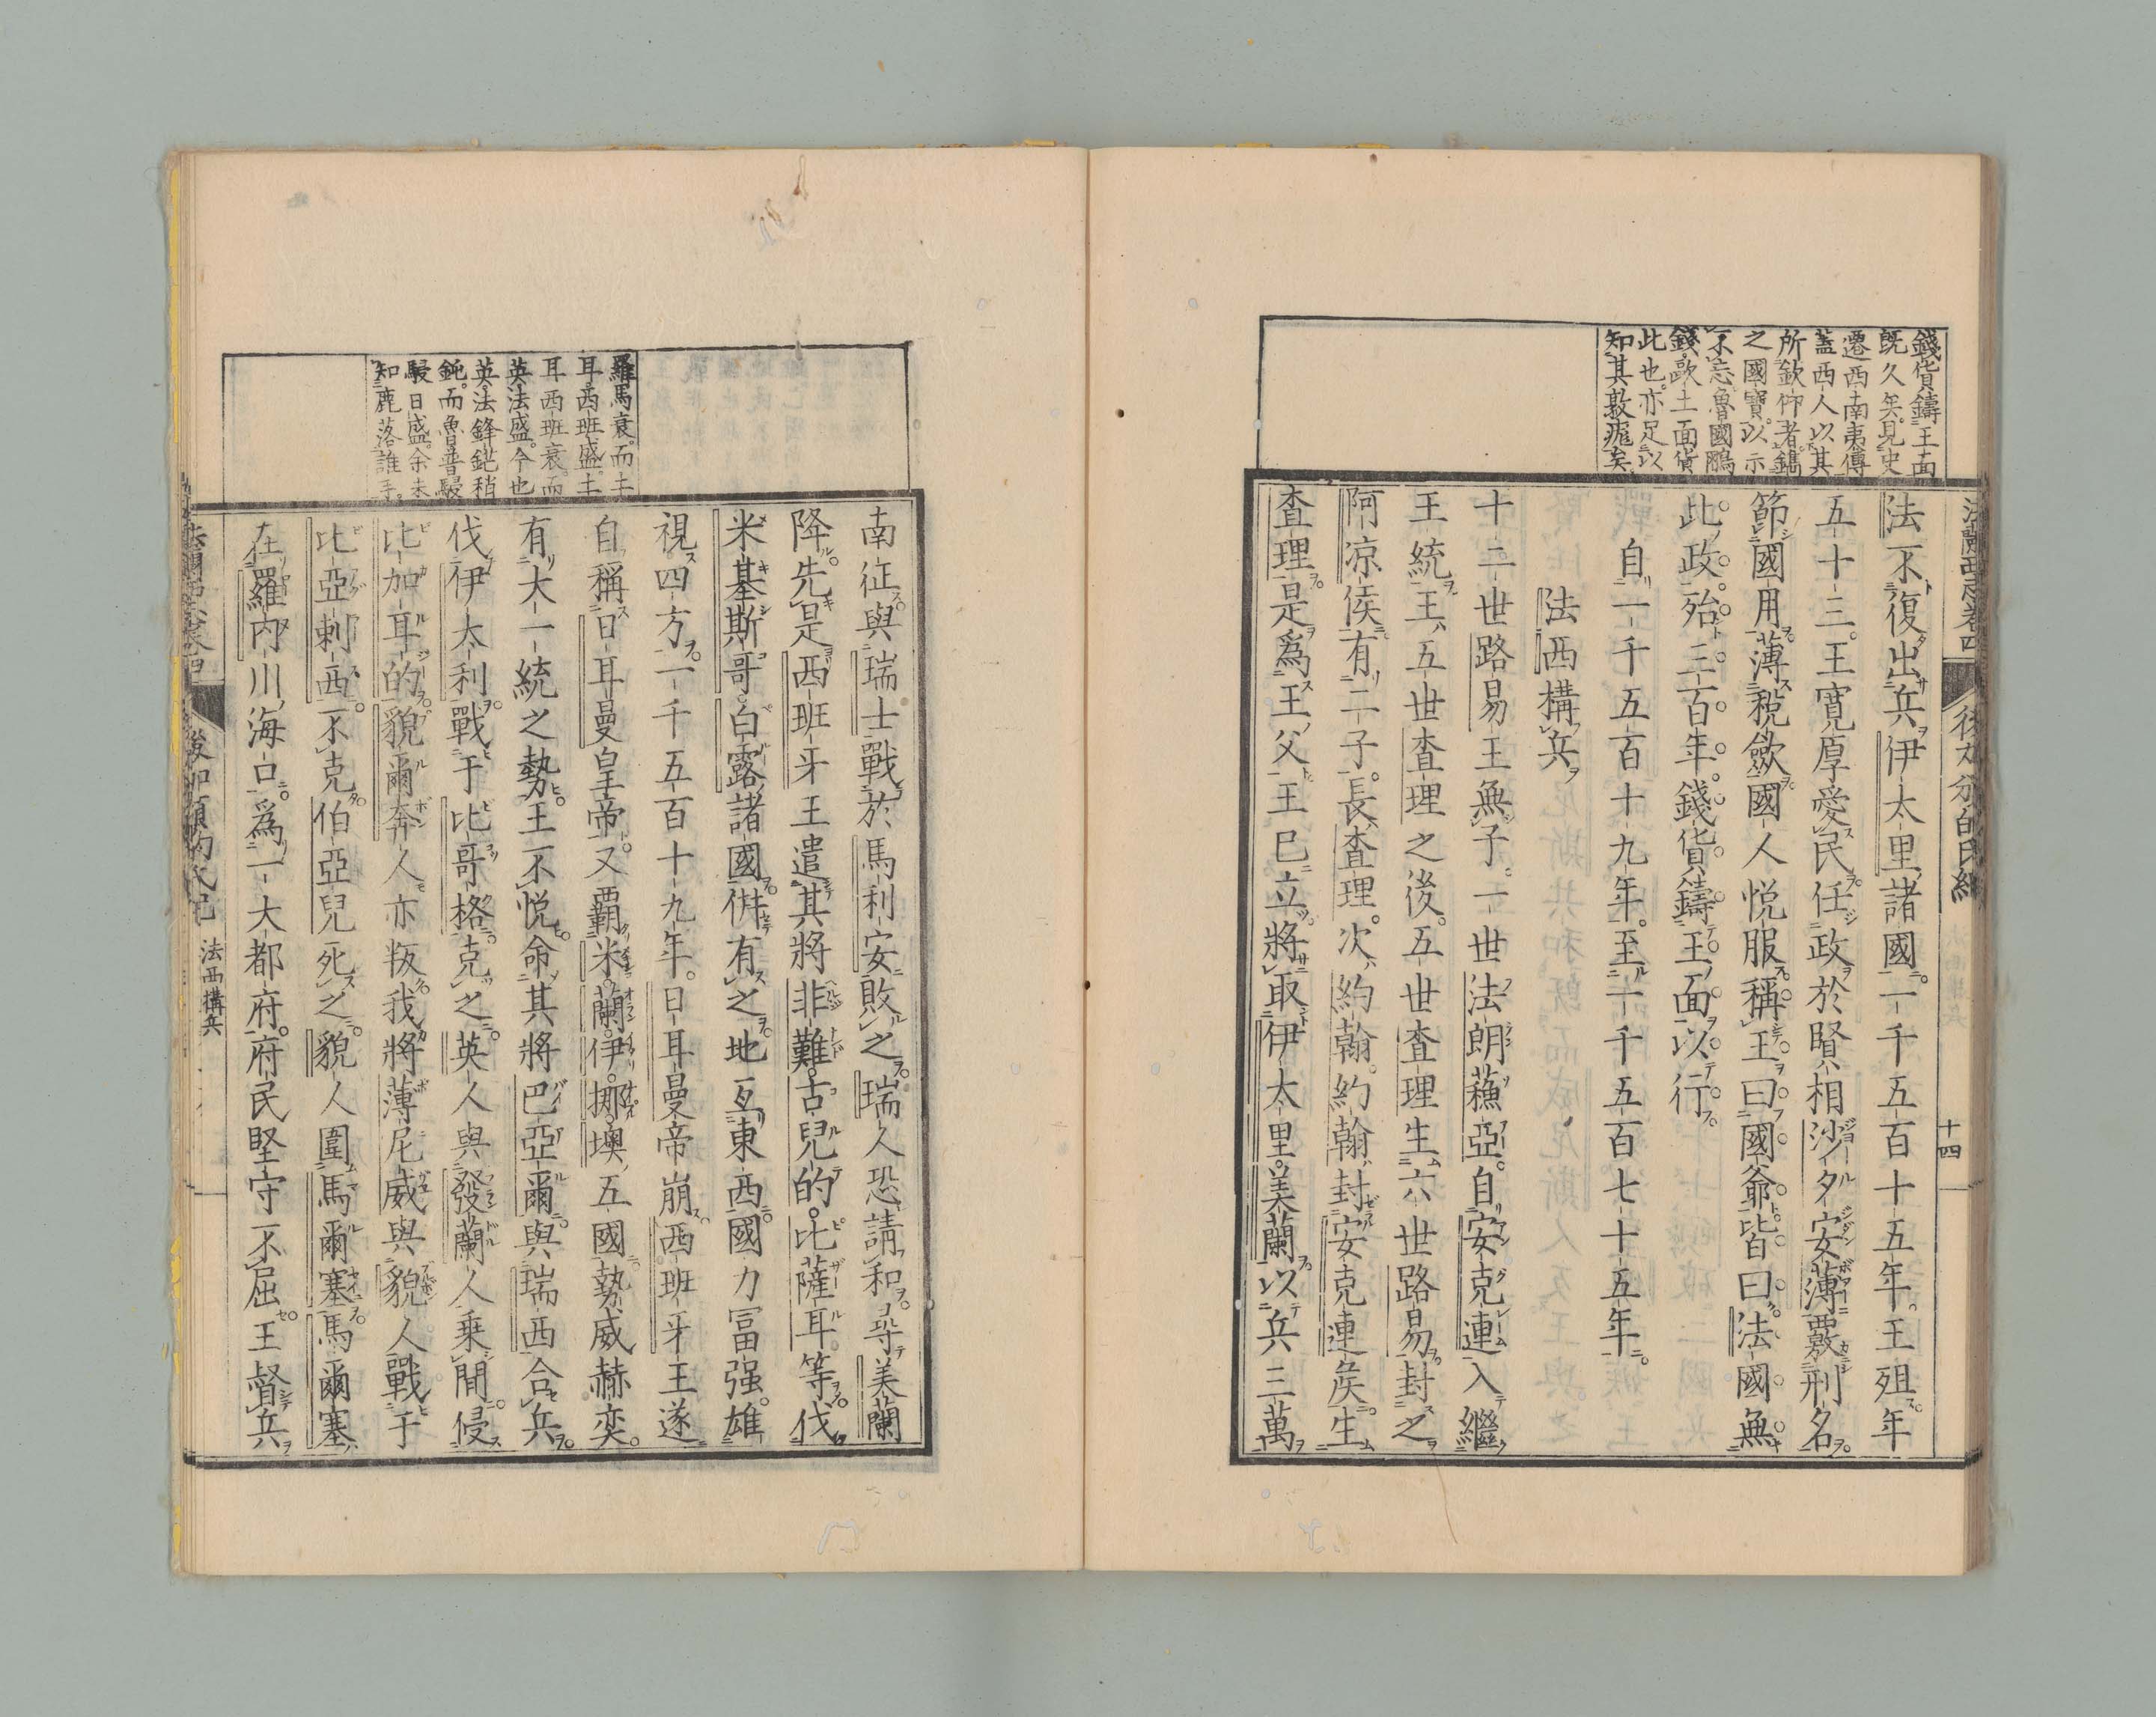 錢貨鑄王面
既久矣見史
遷西南夷傳
蓋西人以其
所欽仰者鐫
之國寶以示
不忘魯國鵰
錢歐土面貨
此也亦足以
知其敦龐矣
十四
法不復出兵伊太里諸國一千五百十五年王殂年
五十三王寬厚愛民任政於賢相沙ー夕安薄覈刑名
節國用薄稅斂國人悅服稱王曰國爺皆曰法國無
此政殆三百年錢貨鑄王面以行
自一千五百十九年至一千五百七十五年
法西構兵
十二世路易王無子一世法朗蘓亞自安克連入繼
王統王五世查理之後五世查理生六世路易封之
阿凉侯有二子長查理次約翰約翰封安克連侯生
查理是為王父王已立將取伊太里美蘭以兵三萬
羅馬衰而土
耳西班盛土
耳西班衰而
英法盛今也
英法鋒鋩稍
鈍而魯普駸
駸日盛余未
知鹿落誰手
南征與瑞士戰於馬利安敗之瑞人恐請和尋美蘭
降先是西班牙王遣其將非難古兒的比薩耳等伐
米基斯哥白露諸國併有之地亙東西國力冨强雄
視四方一千五百十九年日耳曼帝崩西班牙王遂
自稱日耳曼皇帝又覇米蘭伊挪墺五國勢威赫奕
有大一統之勢王不悅命其將巴亞爾與瑞西合兵
伐伊太利戰于比哥格克之英人與發蘭人乗間侵
比加耳的貌爾奔人亦叛我將薄尼威與貌人戰于
比亞剌西不克伯亞兒死之貌人圍馬爾塞馬爾塞
在羅內川海口為一大都府府民堅守不屈王督兵
法西構兵